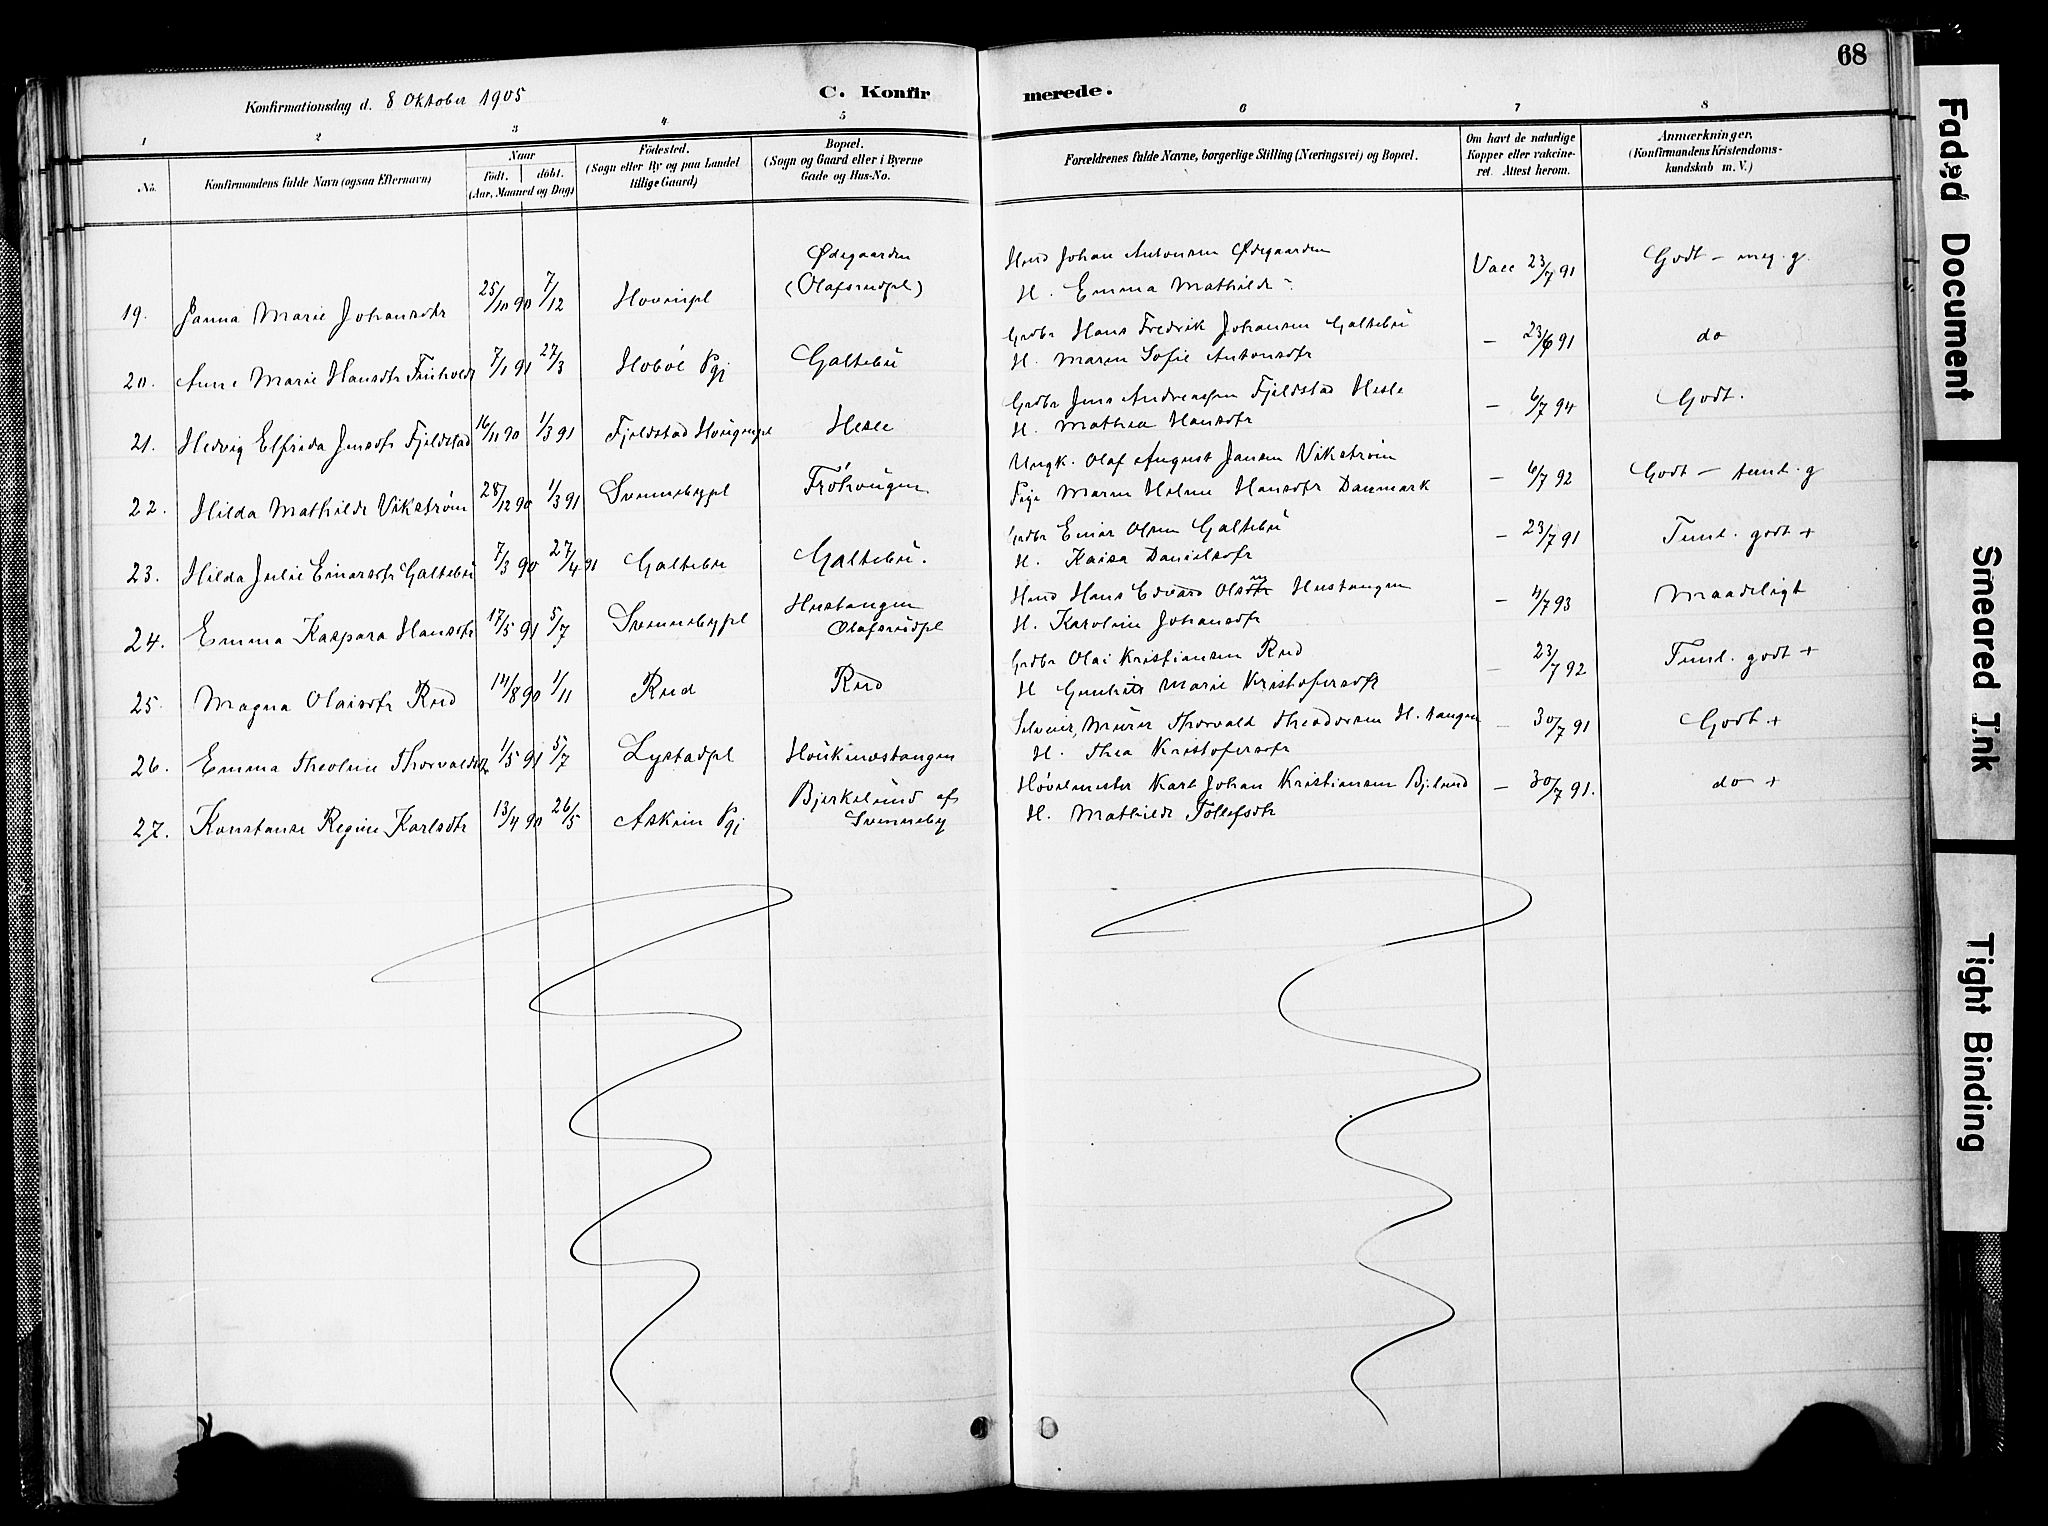 68
Konfirmationsdag d. 8 Oktober 1905
C. Konfirmerede.
1 2 3 4 5 6 7 8
No.
Konfirmandens fulde Navn (ogsaa Efternavn)
Naar
födt. döbt.
(Aar, Maaned og Dag)
Födested.
(Sogn eller By og paa Landet
tillige Gaard)
Bopæl.
(Sogn og Gaard eller i Byerne
Gade og Hus-No.
Forældrenes fulde Navne, borgerlige Stilling (Næringsvei) og Bopæl.
Om havt de naturlige
Kopper eller vakcine-
ret. Attest herom.
Anmærkninger.
(Konfirmandens Kristendoms-
kundskab m. V.)
19. Janna Marie Johansdtr 25/10 90 7/12 Hovinpl Ødegaarden
(Olafsrudpl)
Hmd Johan Antonsen Ødegaarden
H. Emma Mathilde
Vacc 23/7 91 Godt – meg. g.
20. Anne Marie Hansdtr 7/1 91 27/3 Hobøl Pgj Galtebü
Grdbr Hans Fredrik Johansen Galtebü
H. Maren Sofie Antonsdtr
– 23/6 91 do
21. Hedvig Elfrida Jensdtr Fjeldstad 16/11 90 1/3 91 Fjeldstad Hesle
Grdbr Jens Andreassen Fjeldstad Hesle
H. Mathea Hansdtr
– 6/7 94 Godt.
22. Hilda Mathilde Vikstrøm 28/12 90 1/3 91 Svennebypl Frøhaugen
Ungk. Olaf August Jansen Vikstrøm
Pige Maren Helene Hansdtr Danmark
– 6/7 92 Godt – teml. g
23. Hilda Julie Einarsdtr Galtebü 7/3 90 27/4 91 Galtebu Galtebü.
Grdbr Einar Olsen Galtebü
H. Kaisa Danielsdtr
– 23/7 91 Teml. godt +
24. Emma Kaspara Hansdtr 17/5 91 5/7 Svennebypl Hestangen
Olafsrudpl
Hmd Hans Edvard Olsen Hestangen
H. Karoline Johansdtr
– 4/7 93 Maadeligt
25. Magna Olaisdtr Rud 14/8 90 1/11 Rud Rud
Grdbr Olai Kristiansen Rud
H Marie Kristofersdtr
– 23/7 92 Teml. godt +
26. Emma Theoline Thorvaldsdtr 1/5 91 5/7 Lystadpl Haukenestangen
Selveier, Murer Thorvald Theodorsen H. tangen
H. Thea Kristofersdtr
– 30/7 91 Godt +
27. Konstanse Regine Karlsdtr 13/4 90 26/5 Askim Pgj Bjerkelund af
Svenneby
Høvelmester Karl Johan Kristiansen Bj.lund
H. Mathilde Tollefsdtr
– 30/7 91. do +
Faded Document
Smeared Ink
Tight Binding